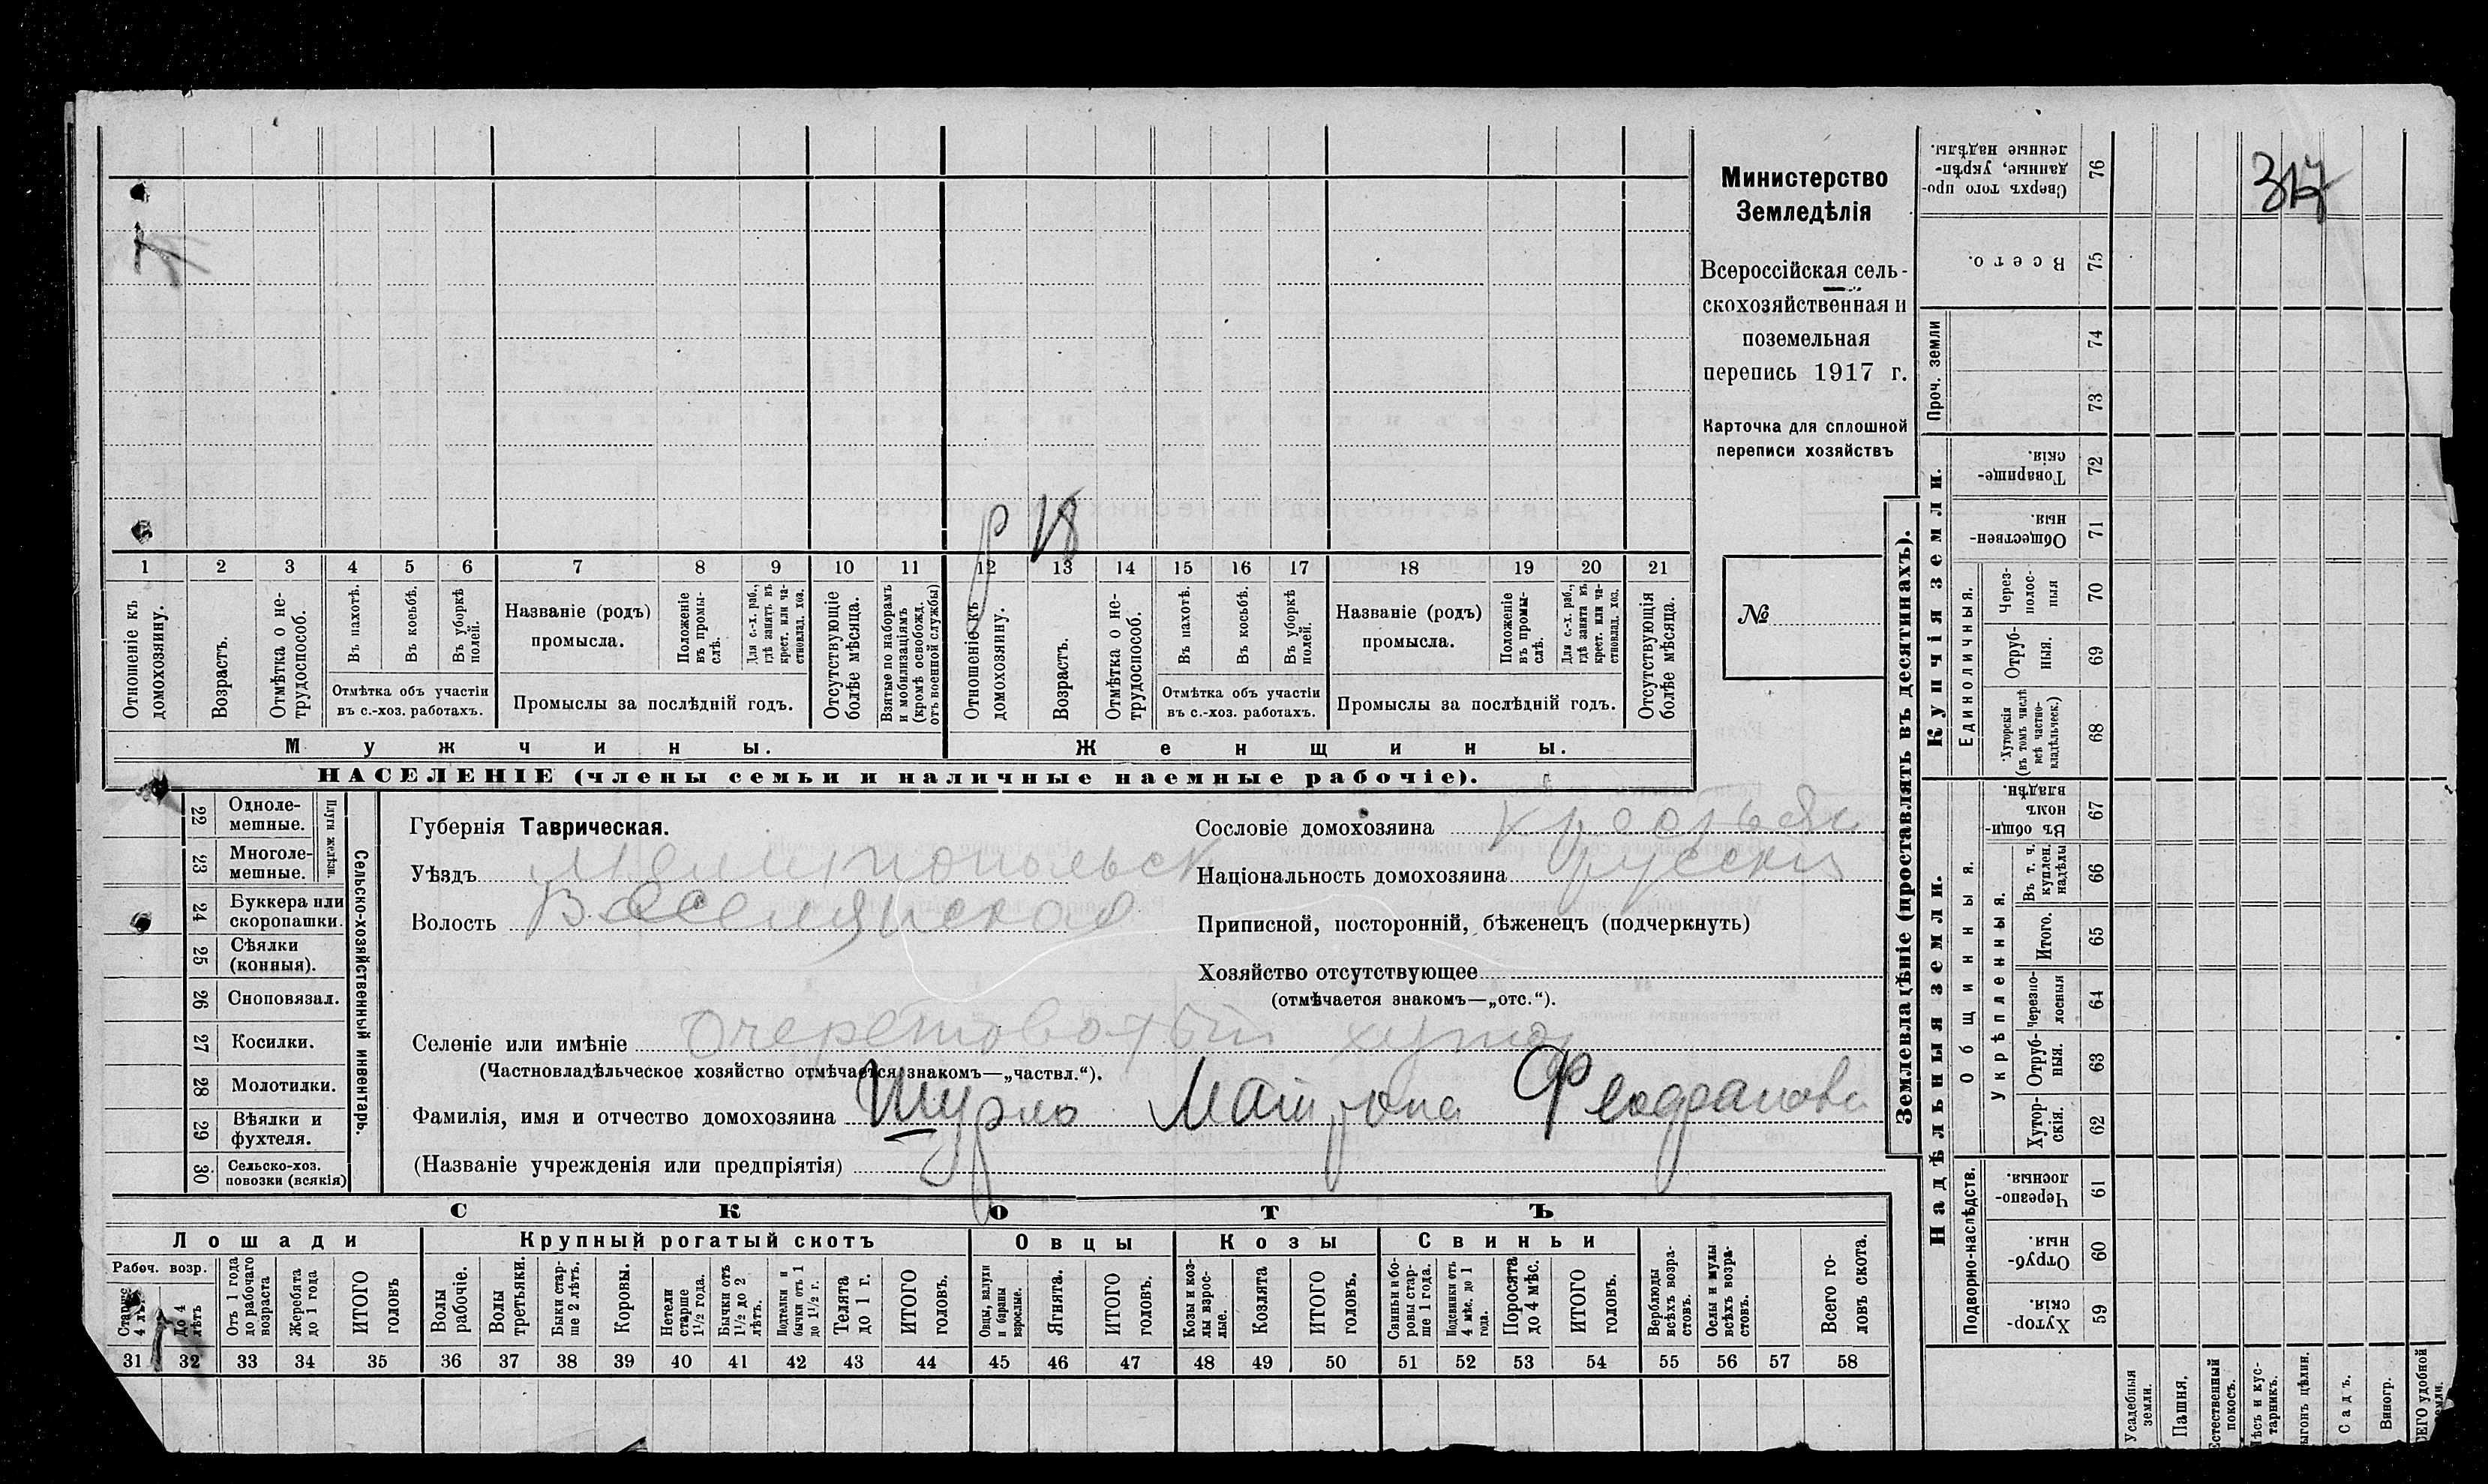 317
Министерство
Земледѣлія
Всероссійская сель-
скохозяйственная и
поземельная
перепись 1917 г.
Карточка для сплошной
переписи хозяйствъ
№
р 18
1 2 3 4 5 6 7 8 9 10 11 12 13 14 15 16 17 18 19 20 21
Отношеніе къ домохозяину.
Возрастъ.
Отмѣтка о не-трудоспособ.
Въ пахотѣ.
Въ косьбѣ.
Въ уборкѣ полей.
Отмѣтка объ участіи
въ с.-хоз. работахъ.
Названіе (родъ)
промысла.
Положеніе въ промы-слѣ.
Для с.-х. раб., гдѣ занятъ въ крест. или ча-стновлад. хоз.
Промыслы за послѣдній годъ.
Отсутствующіе болѣе мѣсяца.
Взятые по наборамъ и мобилизаціямъ (кромѣ освобожд. отъ военной службы)
Отношеніе къ домохозяину.
Возрастъ.
Отмѣтка о не-трудоспособ.
Въ пахотѣ.
Въ косьбѣ.
Въ уборкѣ полей.
Отмѣтка объ участіи
въ с.-хоз. работахъ.
Названіе (родъ)
промысла.
Положеніе въ промы-слѣ.
Для с.-х. раб., гдѣ занята въ крест. или ча-стновлад. хоз.
Промыслы за послѣдній годъ.
Отсутствующія болѣе мѣсяца.
Мужчины.
Женщины.
НАСЕЛЕНІЕ (члены семьи и наличные наемные рабочіе).
22 Одноле-мешные.
23 Многоле-мешные.
Плуги желѣзн.
24 Буккера или скоропашки.
25 Сѣялки (конныя).
26 Сноповязал.
27 Косилки.
28 Молотилки.
29 Вѣялки и фухтеля.
30 Сельско-хоз. повозки (всякія)
Сельско-хозяйственный инвентарь.
Губернія Таврическая.
Уѣздъ Мелитопольск
Волость Васелянская
Сословіе домохозяина крестьян
Національность домохозяина русския
Приписной, посторонній, бѣженецъ (подчеркнуть)
Хозяйство отсутствующее
(отмѣчается знакомъ—„отс.“).
Селеніе или имѣніе Очеретоватый хутор
(Частновладѣльческое хозяйство отмѣчается знакомъ—„частвл.“).
Фамилія, имя и отчество домохозяина Шурло Матрона
(Названіе учрежденія или предпріятія)
СКОТЪ
Лошади
Крупный рогатый скотъ
Овцы
Козы
Свиньи
Рабоч. возр.
Старше 4 лѣтъ
до 4 лѣтъ
Отъ 1 года до рабочаго возраста
Жеребята до 1 года
ИТОГО головъ
Волы рабочіе.
Волы третьяки.
Быки стар-ше 2 лѣтъ.
Коровы.
Нетели старше 1½ года.
Бычки отъ 1½ до 2 лѣтъ.
Подтелки и бычки отъ 1 до 1½ г.
Телята до 1 г.
ИТОГО головъ.
Овцы, валухи и бараны взрослые.
Ягнята.
ИТОГО головъ.
Козы и коз-лы взрос-лые.
Козлята
ИТОГО головъ.
Свиньи и бо-ровы стар-ше 1 года.
Подсвинки отъ 4 мѣс. до 1 года.
Поросята до 4 мѣс.
ИТОГО головъ.
Верблюды всѣхъ возра-стовъ.
Ослы и мулы всѣхъ возра-стовъ.
Всего го-ловъ скота.
31 32 33 34 35 36 37 38 39 40 41 42 43 44 45 46 47 48 49 50 51 52 53 54 55 56 57 58
Землевладѣніе (проставлять въ десятинахъ).
Сверхъ того про-данные, укрѣп-ленные надѣлы. 76
Всего. 75
Проч. земли
74
73
Купчія земли.
Товарище-скія. 72
Обществен-ныя. 71
Единоличныя.
Через-полос-ныя 70
Отруб-ныя. 69
Хуторскія (въ томъ числѣ всѣ частно-владѣльческ.) 68
Надѣльныя земли.
Общинныя.
Въ общин-номъ владѣн. 67
Укрѣпленныя.
Въ т. ч. куплен. надѣлы 66
Итого. 65
Черезпо-лосныя 64
Отруб-ныя. 63
Хутор-скія. 62
Подворно-наслѣдств.
Черезпо-лосныя. 61
Отруб-ныя. 60
Хутор-скія. 59
Усадебныя земли.
Пашня.
Естественный покосъ.
Лѣсъ и кус-тарникъ.
Выгонъ цѣлин.
Садъ.
Виногр.
ВСЕГО удобной земли.